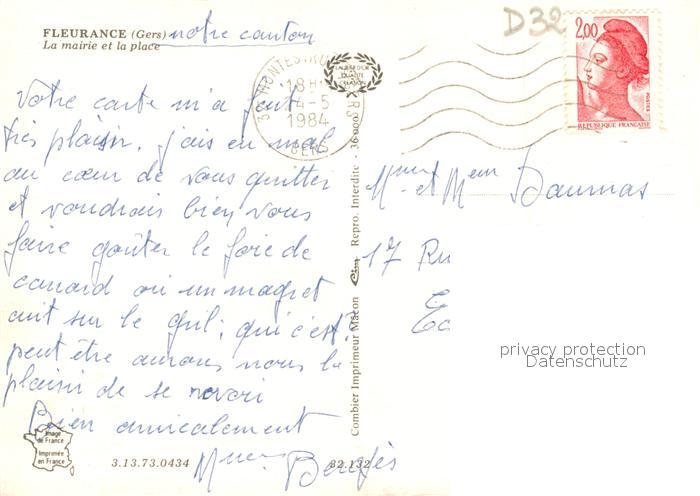 FLEURANCE (Gers) notre canton
La mairie et la place
D32
2,00
POSTES
REPUBLIQUE FRANÇAISE
18H
4-5
1984
GERS
Votre carte m'a fait
très plaisir. j'ais eu mal
au cœur de vous quitter
et voudrais bien vous
faire goûter le foie de
canard ou un magret
cuit sur le gril; qui c'est?
peut être aurons nous le
plaisir de se revoir
Bien amicalement
Mme Bergès
Mme et Mr Daumas
17 Ru
Combier Imprimeur Macon Cim Repro. Interdite - 36.000
privacy protection
Datenschutz
Image
de France
Imprimée
en France
3.13.73.0434
32.132